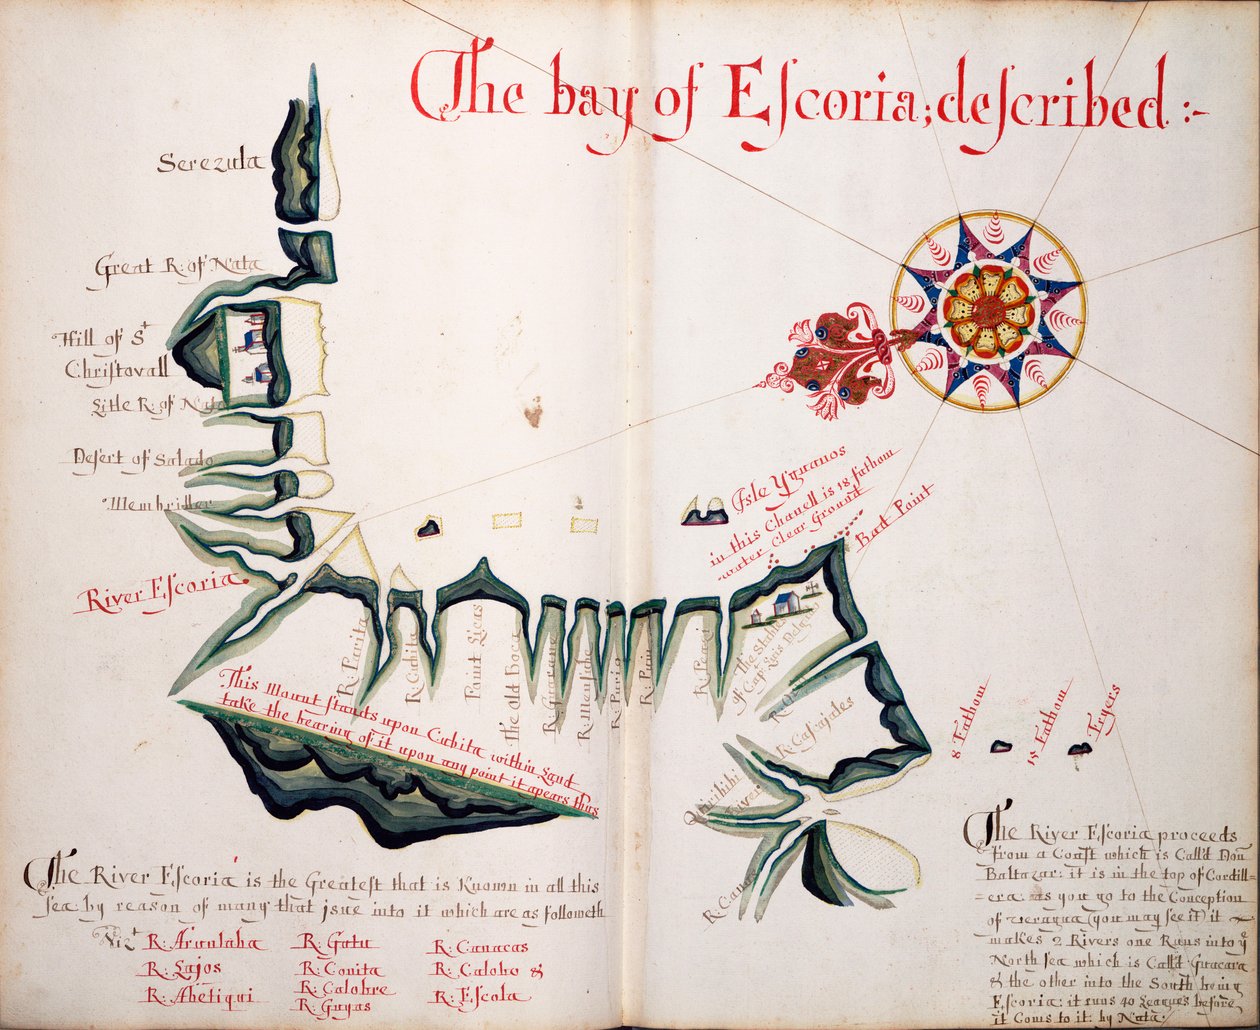 The bay of Eſcoria; deſcribed :~
Serezula
Great R: of Nata
Hill of St
Chriſtovall
Litle R: of Nata
Deſert of Salado
Membriller
River Eſcoria
R: Parita
R: Cubita
Point Licas
The old Boca
R: Guarare
R: Menſube
R: Purio
R: Puri
This Mount ſtands upon Cubita within Land
take the bearing of it upon any point it apears thus
Isle Yguanos
in this Chanell is 18 fathom
water Clear Ground
Bad Point
The Stable
of Capt Luis Delga
R: Caſajales
River
R: Canas
8 Fathom
15 Fathom
Fryers
The River Eſcoria is the Greatest that is Known in all this
ſea by reason of many that jsue into it which are as followeth
Vizt
R: Arunlaha
R: Lajos
R: Abetiqui
R: Gatu
R: Conita
R: Calobre
R: Guyas
R: Canacas
R: Calobo &
R: Eſcola
The River Eſcoria proceeds
from a Coaſt which is Call'd Don
Baltazar: it is in the top of Cordill=
=era as you go to the Conception
of veragua (you may ſee it) it ~
makes 2 Rivers one Runs into ye
North ſea which is Call'd Guacara
& the other into the South being
Eſcoria: it runs 40 Leagues before
it Coms to it: by Nata: